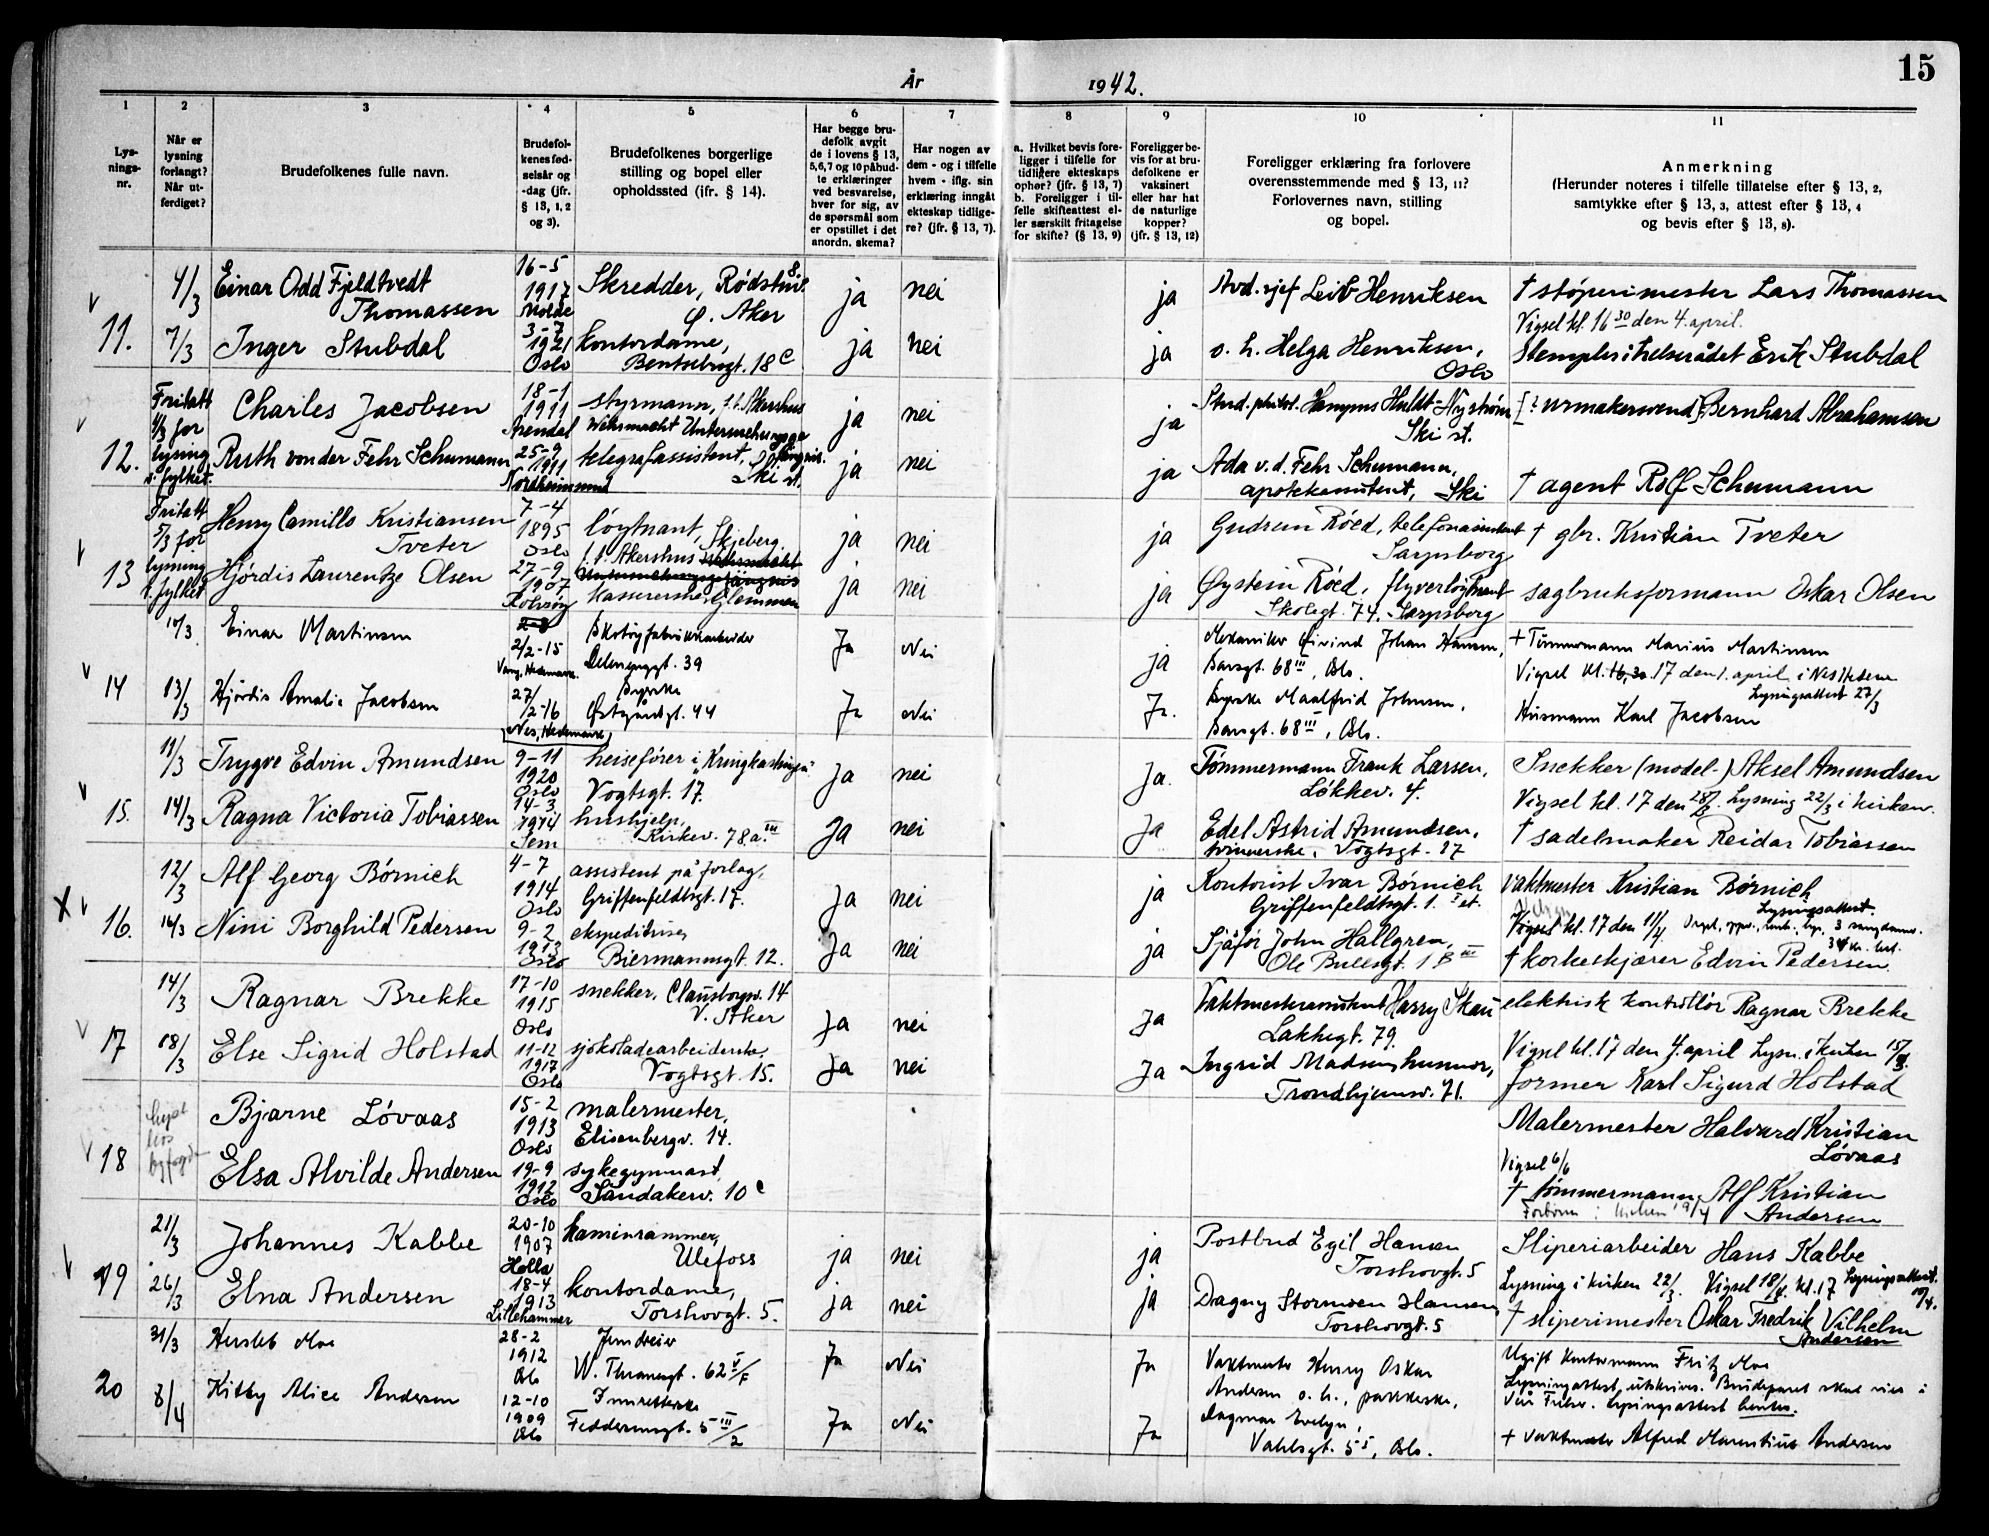 15
År 1942.
1
Lys-
nings-
nr.
2
Når er
lysning
forlangt?
Når ut-
ferdiget?
3
Brudefolkenes fulle navn.
4
Brudefol-
kenes fød-
selsår og
-dag (jfr.
§ 13, 1, 2
og 3).
5
Brudefolkenes borgerlige
stilling og bopel eller
opholdssted (jfr. § 14).
6
Har begge bru-
defolk avgit
de i lovens § 13,
5,6,7 og 10 påbud-
te erklæringer
ved besvarelse,
hver for sig, av
de spørsmål som
er opstillet i det
anordn. skema?
7
Har nogen av
dem - og i tilfelle
hvem - iflg. sin
erklæring inngått
ekteskap tidlige-
re? (jfr. § 13, 7).
8
a. Hvilket bevis fore-
ligger i tilfelle for
tidligere ekteskaps
ophør? (jfr. § 13, 7)
b. Foreligger i til-
felle skifteattest el-
ler særskilt fritagelse
for skifte? (§ 13, 9)
9
Foreligger be-
vis for at bru-
defolkene er
vaksinert
eller har hat
de naturlige
kopper?
(jfr. § 13, 12)
10
Foreligger erklæring fra forlovere
overensstemmende med § 13, 11?
Forlovernes navn, stilling
og bopel.
11
Anmerkning
(Herunder noteres i tilfelle tillatelse efter § 13, 2,
samtykke efter § 13, 3, attest efter § 13, 4
og bevis efter § 13, 8).
11.
4/3
7/3
Einar Odd Fjeldtvedt
Thomassen
16-5
1917
Molde
Skredder,
Aker
ja
nei
ja
Avd. sjef Leif Henriksen
† støperimester Lars Thomassen
Vigsel kl. 16 30 den 4. april.
Inger Stubdal
3-7
1921
Oslo
kontordame,
Bentsebrugt. 18 c
ja
nei
ja
o. h. Helga Henriksen,
Oslo
Erik Stubdal
12.
Fritatt
4/3 for
lysning
f. fylket.
Charles Jacobsen
18-1
1911
Arendal
styrmann, f. t. Akershus
Wehrmacht
ja
nei
ja
Stud. philol.
Ski st.
Bernhard Abrahamsen
Ruth von der Fehr Schumann
25-9
1911
Nordheimsund
telegrafassistent,
Ski st.
ja
nei
ja
Ada v. d. Fehr Schumann,
Ski
† agent Rolf Schumann
13
Fritatt
5/3 for
lysning
f. fylket
Henry Camillo Kristiansen
Tveter
7-4
1895
Oslo
løytnant, Skjeberg,
f. t. Akershus
ja
nei
ja
Gudrun Røed, telefonassistent
Sarpsborg
† gbr. Kristian Tveter
Hjørdis Laurentze Olsen
27-9
1907
kassererske, Glemmen
ja
nei
ja
Øystein Røed, flyverløytnant
Skolegt. 74. Sarpsborg
sagbruksformann Oskar Olsen
14
10/3
13/3
Einar Martinsen
2/2-15
Vang, Hedemark
Skotøyfabrikkarbeider
39
Ja
Nei
ja
Mekaniker Øivind Johan Hansen,
68 III, Oslo.
+ Tømmermann Marius Martinsen
Vigsel kl. 16,30. 17 den 1. april i
Lysningsattest 27/3
Hjørdis Amalie Jacobsen
27/2-16
Nes, Hedemark
Syerske
Østgårdsgt. 44
Ja
Nei
Ja.
Syerske Maalfrid Johnsen,
68 III, Oslo.
Husmann Karl Jacobsen
15.
11/3
14/3
Trygve Edvin Amundsen
9-11
1920
Oslo
heisefører i "Kringkastingen"
Vogtsgt. 17.
Ja
nei
Ja.
Tømmermann Frank Larsen,
Løkkev. 4.
Snekker (model-) Aksel Amundsen
Vigsel kl. 17 den Lysning 22/3 i kirken.
Ragna Victoria Tobiassen
14-3
1914
Sem
hushjelp,
Kirkev. 78 a. III
Ja
nei
Ja
Edel Astrid Amundsen,
Vogtsgt. 17
† sadelmaker Reidar Tobiassen
16.
12/3
14/3
Alf Georg Børnich
4-7
1914
Oslo
assistent på forlag,
Griffenfeldtsgt. 17.
Ja
nei
ja
Kontorist Ivar Børnich
Griffenfeldtsgt. 1. I et.
Vaktmester Kristian Børnich
Lysningsattest.
Vigsel kl. 17 den 11/4.
Nini Borghild Pedersen
9-2
1913
Oslo
ekspeditrise,
Biermannsgt. 12.
Ja
nei
ja
Sjåfør John Hallgren,
Ole Bullsgt. 1 B III
† korkeskjærer Edvin Pedersen.
17
14/3
18/3
Ragnar Brekke
17-10
1915
Oslo
snekker. Clausborgv. 14
V. Aker
Ja
nei
Ja
Vaktmesterassistent Harry Skau
Lakkegt. 79.
elektrisk kontrollør Ragnar Brekke
Vigsel kl. 17 den 4. april Lysn. i kirken 15/3.
Else Sigrid Holstad
11-12
1917
Oslo
sjokoladearbeiderske,
Vogtsgt. 15.
Ja
nei
Ja
Ingrid Madsen, husmor,
Trondhjemsv. 71.
former Karl Sigurd Holstad
18
hos
byfogd
Bjarne Løvaas
15-2
1913
Oslo
malermester,
Elisenbergv. 14.
Malermester Halvard Kristian
Løvaas
Vigsel 6/6
Elsa Alvilde Andersen
19-9
1912
Oslo
sykegymnast,
Sandakerv. 10 c
† tømmermann Alf Kristian
Andersen
19
21/3
26/3
Johannes Kabbe
20-10
1907
Holla
Ulefoss
ja
nei
ja
Postbud Egil Hansen
Torshovgt. 5
Sliperiarbeider Hans Kabbe
Lysning i kirken 22/3. Vigsel 18/4. kl. 17 Lysningsattest.
Elna Andersen
18-4
1913
Lillehammer
kontordame,
Torshovgt. 5.
ja
nei
ja
Dagny Stormoen Hansen,
Torshovgt. 5
† sliperimester Oskar Fredrik Vilhelm
Andersen
20
31/3
8/4
Hersleb Moe
28-2
1912
Oslo
Jerndreier
W. Thranesgt. 62 V/F
Ja
Nei
Ja
Vaktmester Henry Oskar
Andersen o. h., pakkerske,
Ugift kontormann Fritz Moe
Lysningsattest utskrives. Brudeparet skal vies i
Vår Frelser. Lysingsattest hentes.
Kitty Alice Andersen
12-10
1909
Oslo
Feddersensgt. 5 III/2
Ja
Nei
Ja
Dagmar Evelyn,
Vahlsgt. 5 5, Oslo.
+ vaktmester Alfred Marentius Andersen